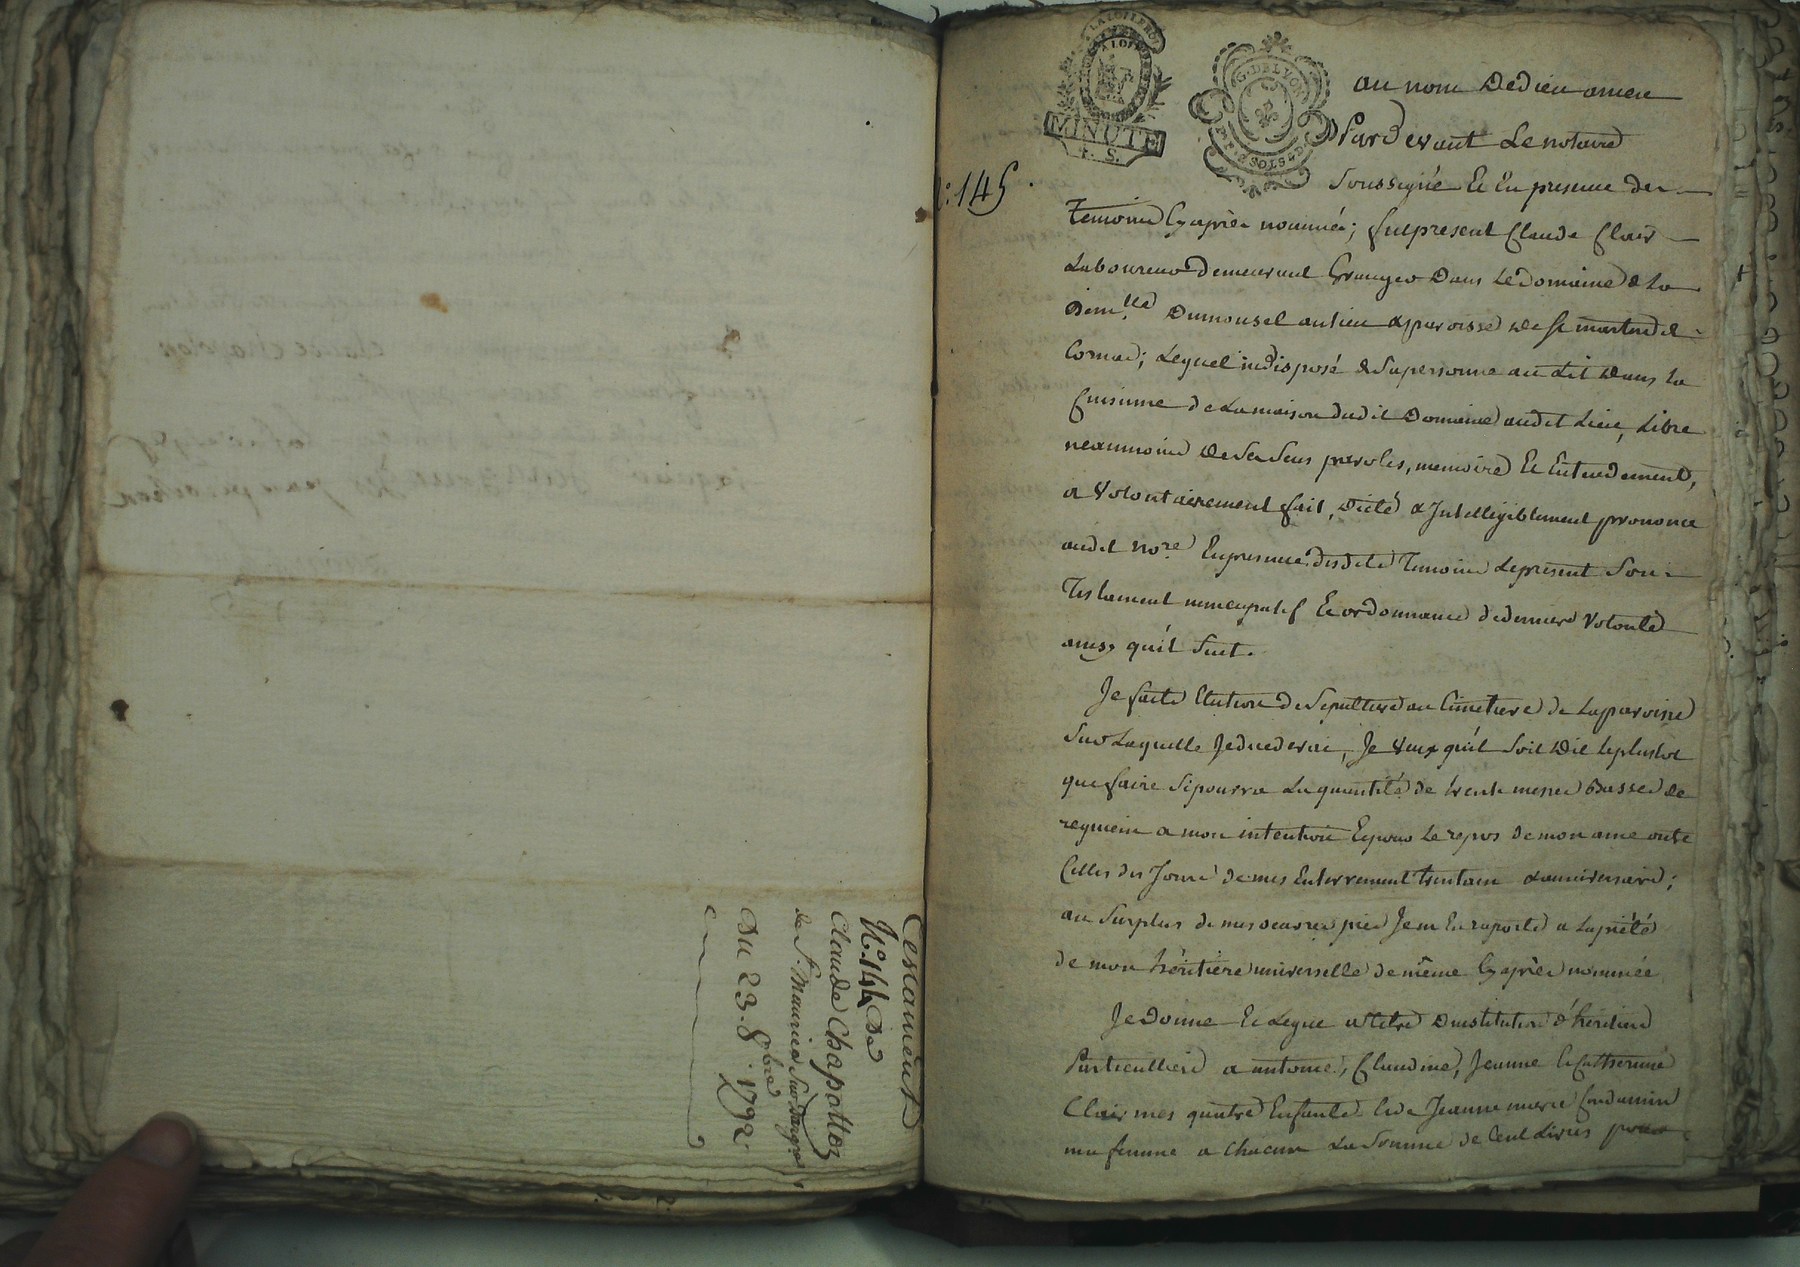 Testament
N.° 144 De
Claude Chapottoz
de S.t Maurice Sur Dargre
Du 23. 8bre 1792.
LA LOI LE ROI
MINUTE
4. S.
G. DE LYON
:145.
au nom De dieu amen
Pardevant Le notaire
Soussigné Et En presence des
Temoins Cyaprès nommés; futpresent Claude Clair
Laboureur demeurant Granger Dans Le domaine de La
Dem.lle Dumousel au lieu & parroisse de St martin de
Cornas; Lequel indisposé de Sa personne au Lit Dans La
Cuisinne de La maison dudit Domaine audit Lieu, Libre
neanmoins De Ses Sens paroles, memoire Et Entendement,
a Volontairement fait, Dicté & Intelligiblement prononcé
audit No.re En presence desdits Temoins Le present Son
Testament nuncupatif Et ordonnance de derniere Volonté
ainsy qu'il Suit.
Je faits Election de Sepulture au Cimetiere de La parroisse
Sur Laquelle Je decederai, Je Veux qu'il Soit Dit Le plustot
que faire Se pourra La quantité de trente messes Basses de
requiem a mon intention Et pour Le repos de mon ame outre
Celles des Jours de mes Enterrement trentain & anniversaire;
au Surplus de mes oeuvres pies Je m'En raporte a La piété
de mon héritiere universelle de même Cyaprès nommée
Je Donne Et Legue a titre D'institution d'héritiers
Particulliers a antoine, Claudine, Jeanne Et Catherine
Clair mes quatre Enfants & de Jeanne marie Condamin
ma femme a Chacun La Somme de Cent Livres pour